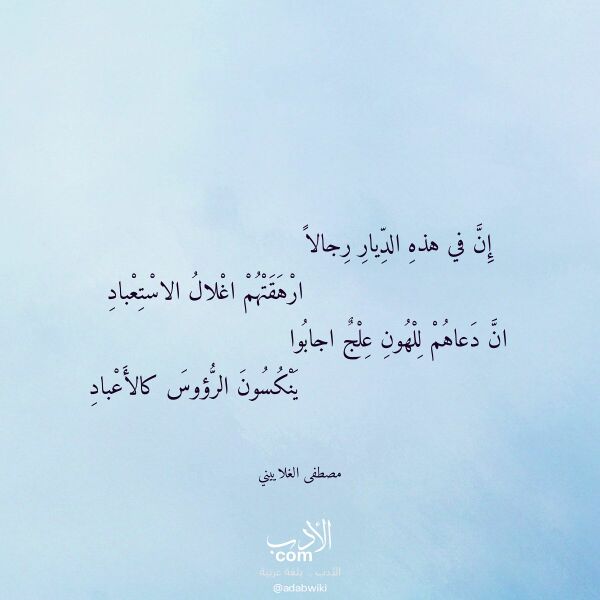 إِنَّ في هذهِ الدِّيارِ رِجالاً
ارْهَقَتْهُمْ اغْلالُ الاسْتِعْبادِ
انَّ دَعاهُمْ لِلْهُونِ عِلْجٌ اجابُوا
يَنْكُسُونَ الرُّؤوسَ كالأَعْبادِ
مصطفى الغلاييني
الأدب
com
الأدب .. بلغة عربية
@adabwiki